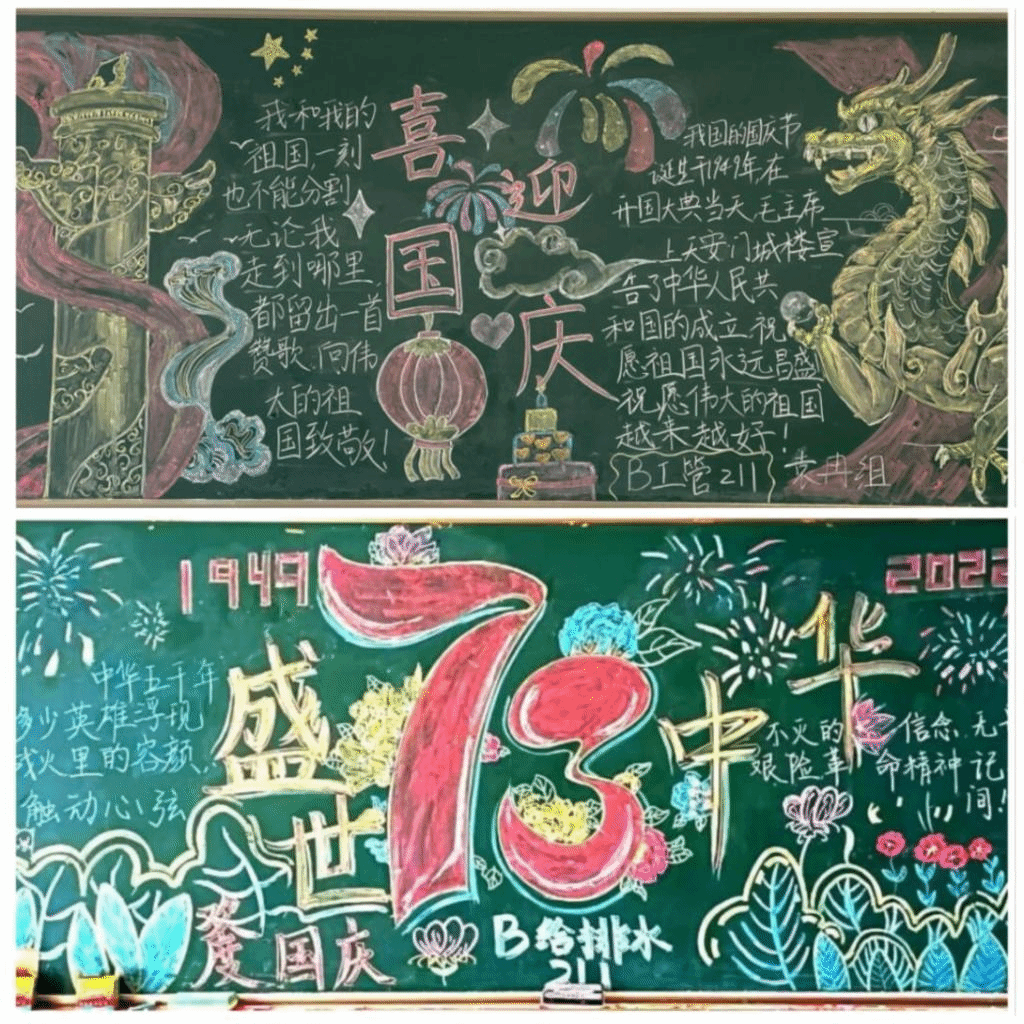 我和我的
祖国,一刻
也不能分割
无论我
走到哪里
都留出一首
赞歌,向伟
大的祖
国致敬!
喜
迎
国
庆
我国的国庆节
诞生于1949年,在
开国大典当天,毛主席
上天安门城楼宣
告了中华人民共
和国的成立,祝
愿祖国永远昌盛
祝愿伟大的祖国
越来越好!
B工管211
袁冉组
1949
73
2022
盛
世
中
华
中华五千年
多少英雄浮现
战火里的容颜,
触动心弦
不灭的 信念 无
艰险革 命精神 记
间!
国庆
B给排水
211